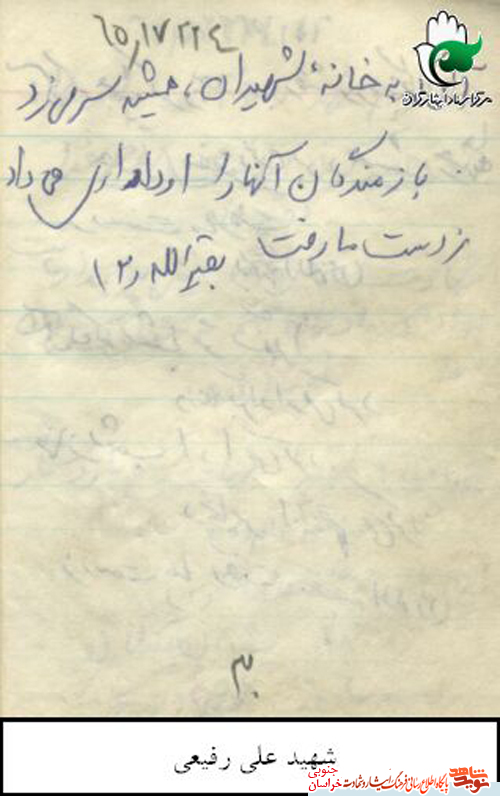 ۶۵٫۱۷۲۲۴
مرکز اسناد ایثارگران
به خانهٔ شهیدان، همیشه سر می زد
بازمندگان آنها را او دلداری می داد
ز دست ما رفت بقیةالله (۲
۳۰
شهید علی رفیعی
پایگاه اطلاع رسانی فرهنگ ایثار و شهادت
خراسان جنوبی
نوید شاهد